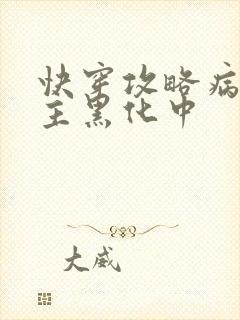 快穿攻略病
主黑化中
大威